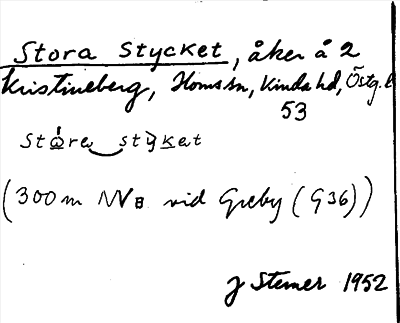 Stora Stycket, åker å 2
Kristineberg, Horns sn, Kinda hd, Östg. l
53
Stora stycket
(300 m NV vid Greby (G36))
J Stemer 1952